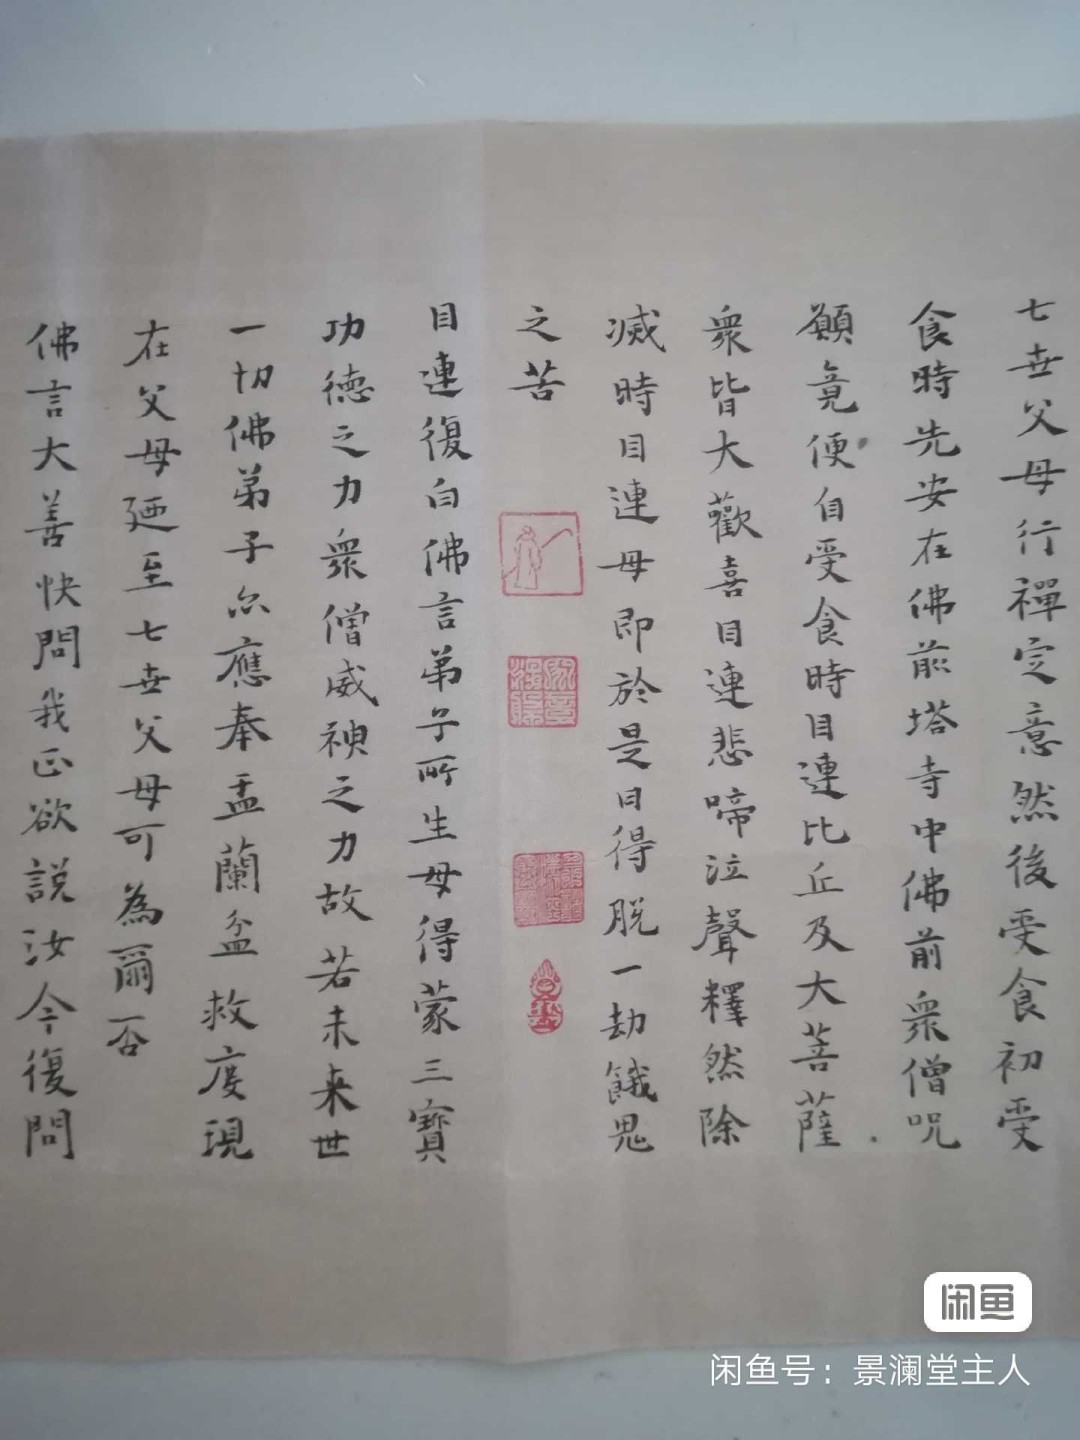 七世父母行禪定意然後受食初受
食時先安在佛前塔寺中佛前眾僧呪
願竟便自受食時目連比丘及大菩薩
眾皆大歡喜目連悲啼泣聲釋然除
滅時目連母即於是日得脫一劫餓鬼
之苦
目連復白佛言弟子所生母得蒙三寶
功德之力眾僧威神之力故若未来世
一切佛弟子亦應奉盂蘭盆救度現
在父母廼至七世父母可為爾否
佛言大善快問我正欲說汝今復問
闲鱼
闲鱼号：景澜堂主人